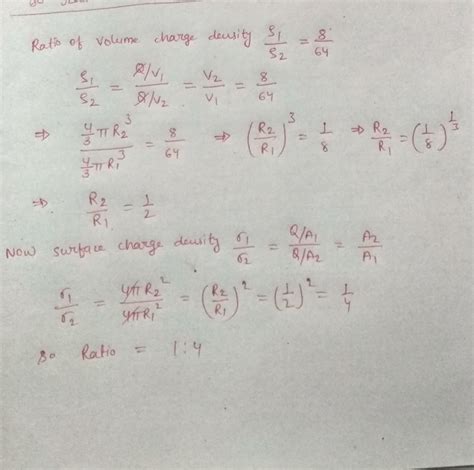 Ratio of volume charge density ρ1/ρ2 = 8/64
ρ1/ρ2 = (Q/V1)/(Q/V2) = V2/V1 = 8/64
⇒ (4/3 πR2^3)/(4/3 πR1^3) = 8/64 ⇒ (R2/R1)^3 = 1/8 ⇒ R2/R1 = (1/8)^(1/3)
⇒ R2/R1 = 1/2
Now surface charge density σ1/σ2 = (Q/A1)/(Q/A2) = A2/A1
σ1/σ2 = (4πR2^2)/(4πR1^2) = (R2/R1)^2 = (1/2)^2 = 1/4
So Ratio = 1:4